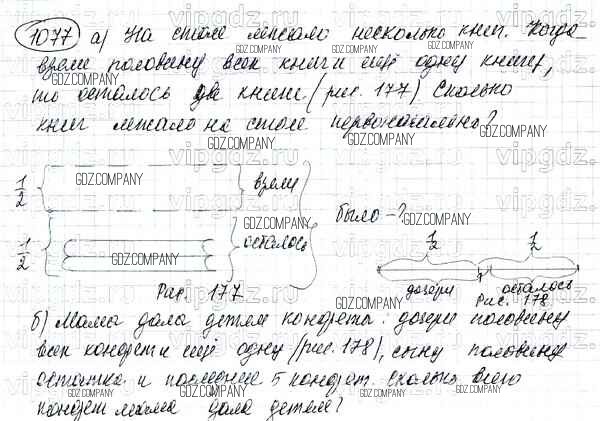 1077 а) На столе лежало несколько книг. Когда
взяли половину всех книг и ещё одну книгу,
то осталось две книги (рис. 177) Сколько
книг лежало на столе первоначально?
1/2 взяли
было - ?
1/2 осталось
1/2 1/2
дочери осталось
Рис. 177
Рис. 178
б) Мама дала детям конфеты: дочери половину
всех конфет и ещё одну (рис. 178), сыну половину
остатка и последние 5 конфет. Сколько всего
конфет мама дала детям?
GDZ.COMPANY
vipgdz.ru